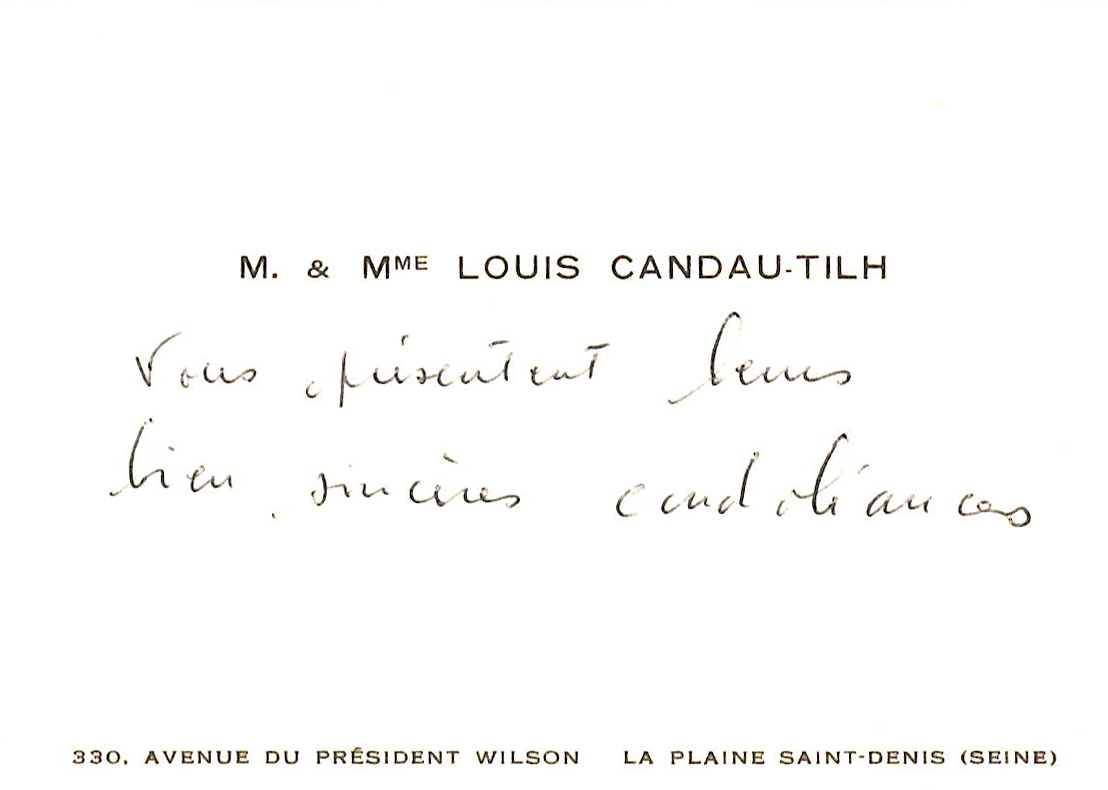 M. & MME LOUIS CANDAU-TILH
Vous présentent leurs
bien sincères condoléances
330, AVENUE DU PRÉSIDENT WILSON LA PLAINE SAINT-DENIS (SEINE)